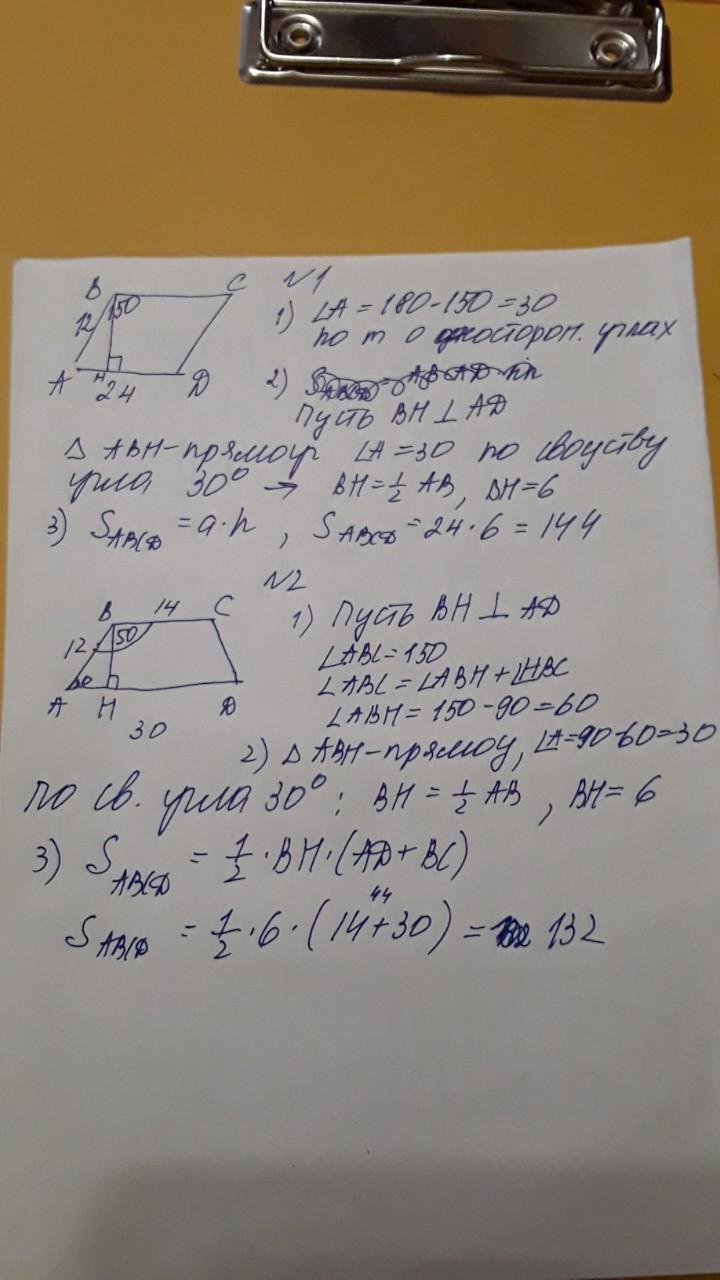 N1
B C
150
12
A H D
24
1) ∠A = 180-150 = 30
по т о односторон. углах
2)
Пусть BH ⊥ AD
Δ ABH-прямоуг ∠A = 30 по своуству
угла 30° → BH = 1/2 AB, BH = 6
3) S ABCD = a·h , S ABCD = 24·6 = 144
N2
14
B C
150
12
A H D
30
1) Пусть BH ⊥ AD
∠ABC = 150
∠ABC = ∠ABH + ∠HBC
∠ABH = 150 - 90 = 60
2) Δ ABH-прямоу, ∠A = 90-60 = 30
по св. угла 30° : BH = 1/2 AB , BH = 6
3) S ABCD = 1/2 · BH · (AD + BC)
44
S ABCD = 1/2 · 6 · (14+30) = 132